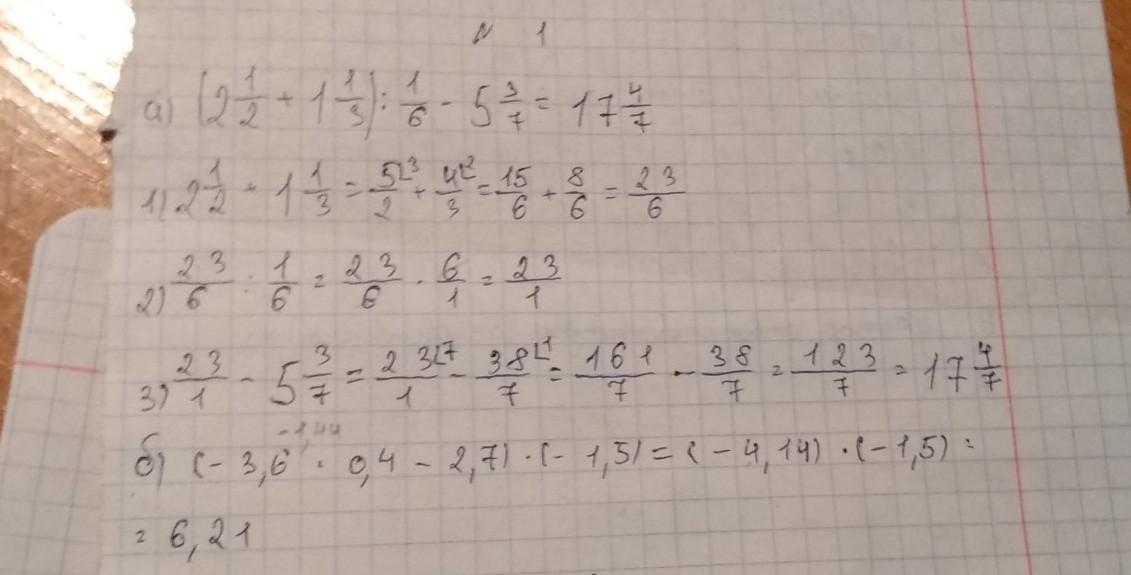 № 1
а) (2 1/2 + 1 1/3) : 1/6 - 5 3/7 = 17 4/7
1) 2 1/2 - 1 1/3 = 5⌊3/2 + 4⌊2/3 = 15/6 + 8/6 = 23/6
2) 23/6 : 1/6 = 23/6 · 6/1 = 23/1
3) 23/1 - 5 3/7 = 23⌊7/1 - 38⌊1/7 = 161/7 - 38/7 = 123/7 = 17 4/7
-1,44
б) (- 3,6 · 0,4 - 2,7) · (- 1,5) = (- 4,14) · (-1,5) =
= 6,21